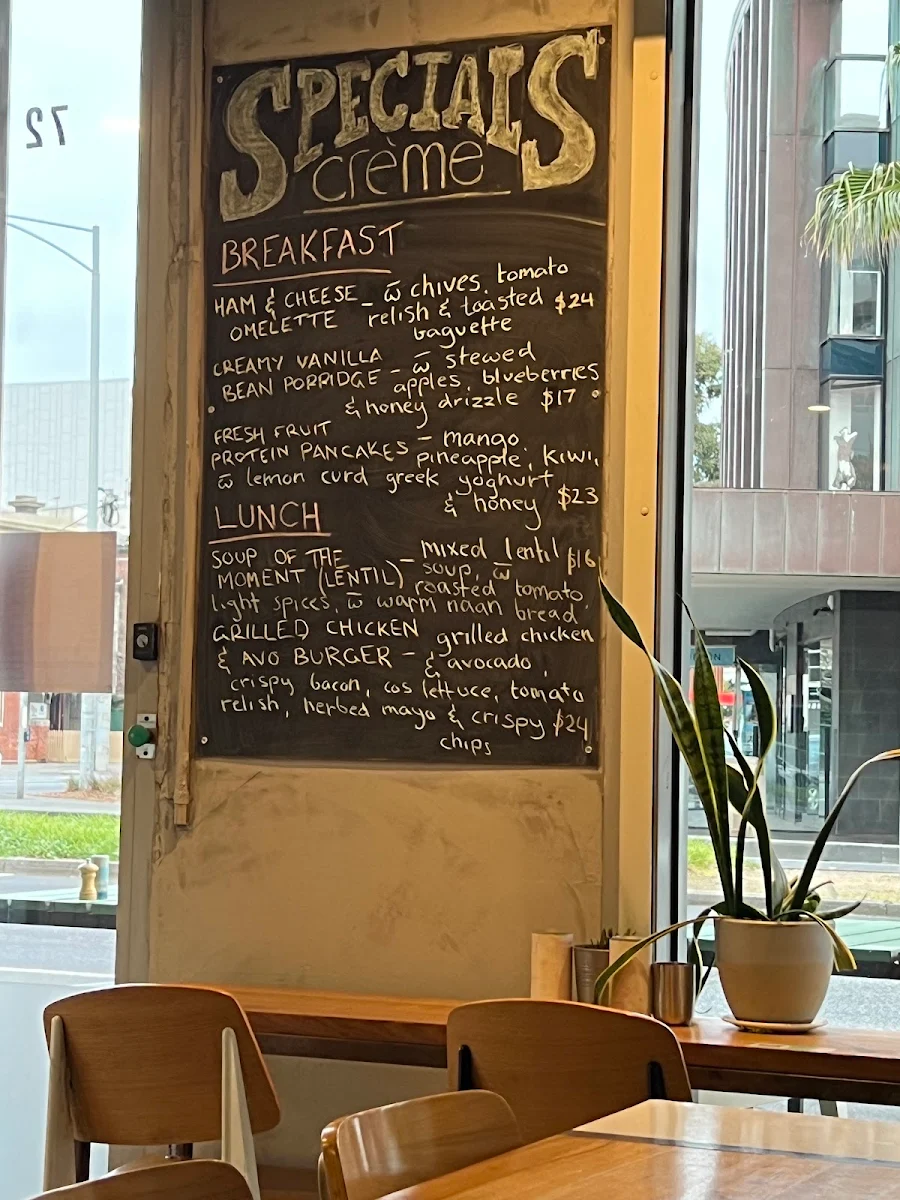 72
SPECIALS
crème
BREAKFAST
HAM & CHEESE - w̅ chives, tomato
OMELETTE relish & toasted $24
baguette
CREAMY VANILLA - w̅ stewed
BEAN PORRIDGE apples, blueberries
& honey drizzle $17
FRESH FRUIT - mango
PROTEIN PANCAKES pineapple, kiwi,
w̅ lemon curd greek yoghurt
& honey $23
LUNCH
SOUP OF THE - mixed lentil $16
MOMENT (LENTIL) soup, w̅
roasted tomato,
light spices, w̅ warm naan bread.
GRILLED CHICKEN grilled chicken
& AVO BURGER - & avocado,
crispy bacon, cos lettuce, tomato
relish, herbed mayo & crispy $24
chips